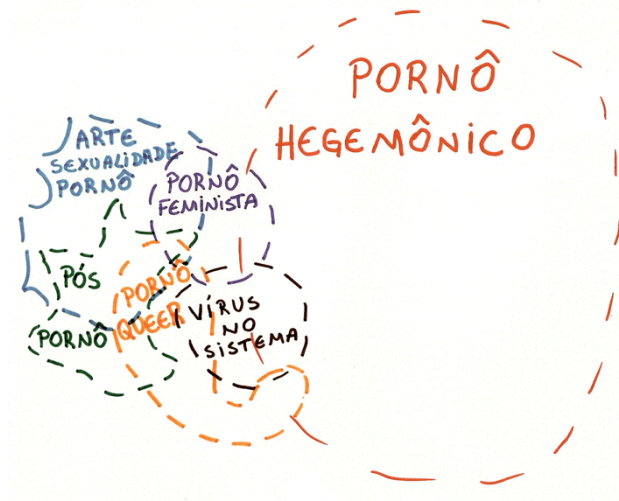 PORNÔ
HEGEMÔNICO
ARTE
SEXUALIDADE
PORNÔ
PORNÔ
FEMINISTA
PÓS
PORNÔ
PORNÔ
QUEER
VÍRUS
NO
SISTEMA